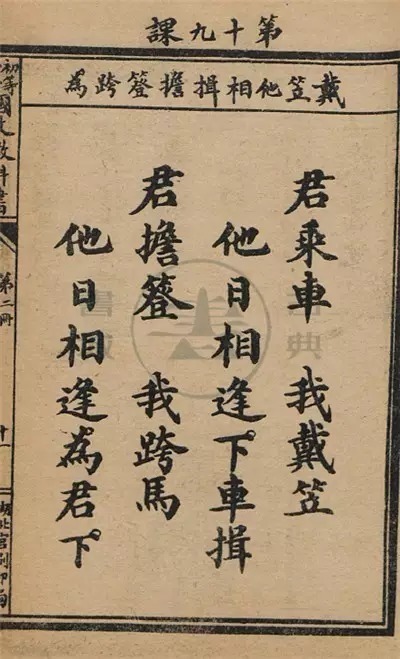 第十九課
戴笠他相揖擔簦跨為
君乘車 我戴笠
他日相逢下車揖
君擔簦 我跨馬
他日相逢為君下
初等國文教科書
第二冊
十一